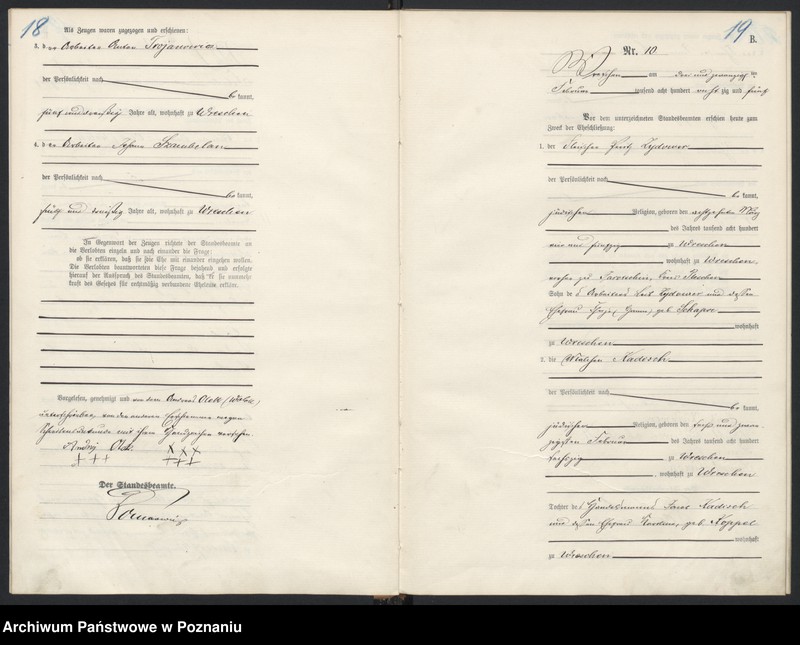 18
Als Zeugen waren zugezogen und erschienen:
3. der Arbeiter Anton Trojanowicz
der Persönlichkeit nach
be kannt,
fünf und dreißig Jahre alt, wohnhaft zu Wreschen
4. der Arbeiter Johann
der Persönlichkeit nach
be kannt,
fünf und dreißig Jahre alt, wohnhaft zu Wreschen
In Gegenwart der Zeugen richtete der Standesbeamte an
die Verlobten einzeln und nach einander die Frage:
ob sie erklären, daß sie die Ehe mit einander eingehen wollen.
Die Verlobten beantworteten diese Frage bejahend und erfolgte
hierauf der Ausspruch des Standesbeamten, daß er sie nunmehr
kraft des Gesetzes für rechtmäßig verbundene Eheleute erkläre.
Vorgelesen, genehmigt und von dem
unterschrieben, von den anderen wegen
mit ihren Handzeichen versehen.
+ + + x x x
+ + +
Der Standesbeamte.
19
B.
Nr. 10
Wreschen am drei und zwanzigsten
Februar tausend acht hundert acht zig und fünf
Vor dem unterzeichneten Standesbeamten erschien heute zum
Zweck der Eheschließung:
1. der Fleischer
der Persönlichkeit nach
be kannt,
jüdischer Religion, geboren den März
des Jahres tausend acht hundert
und fünfzig zu Wreschen
, wohnhaft zu Wreschen,
Sohn des Arbeiters und dessen
Ehefrau geb. Schapre
wohnhaft
zu Wreschen
2. die Kadesch
der Persönlichkeit nach
be kannt,
jüdischer Religion, geboren den sechs und zwan-
zigsten Februar des Jahres tausend acht hundert
sechszig zu Wreschen
, wohnhaft zu Wreschen
Tochter des Handelsmanns Kadesch
und dessen Ehefrau geb. Koppel
wohnhaft
zu Wreschen
Archiwum Państwowe w Poznaniu